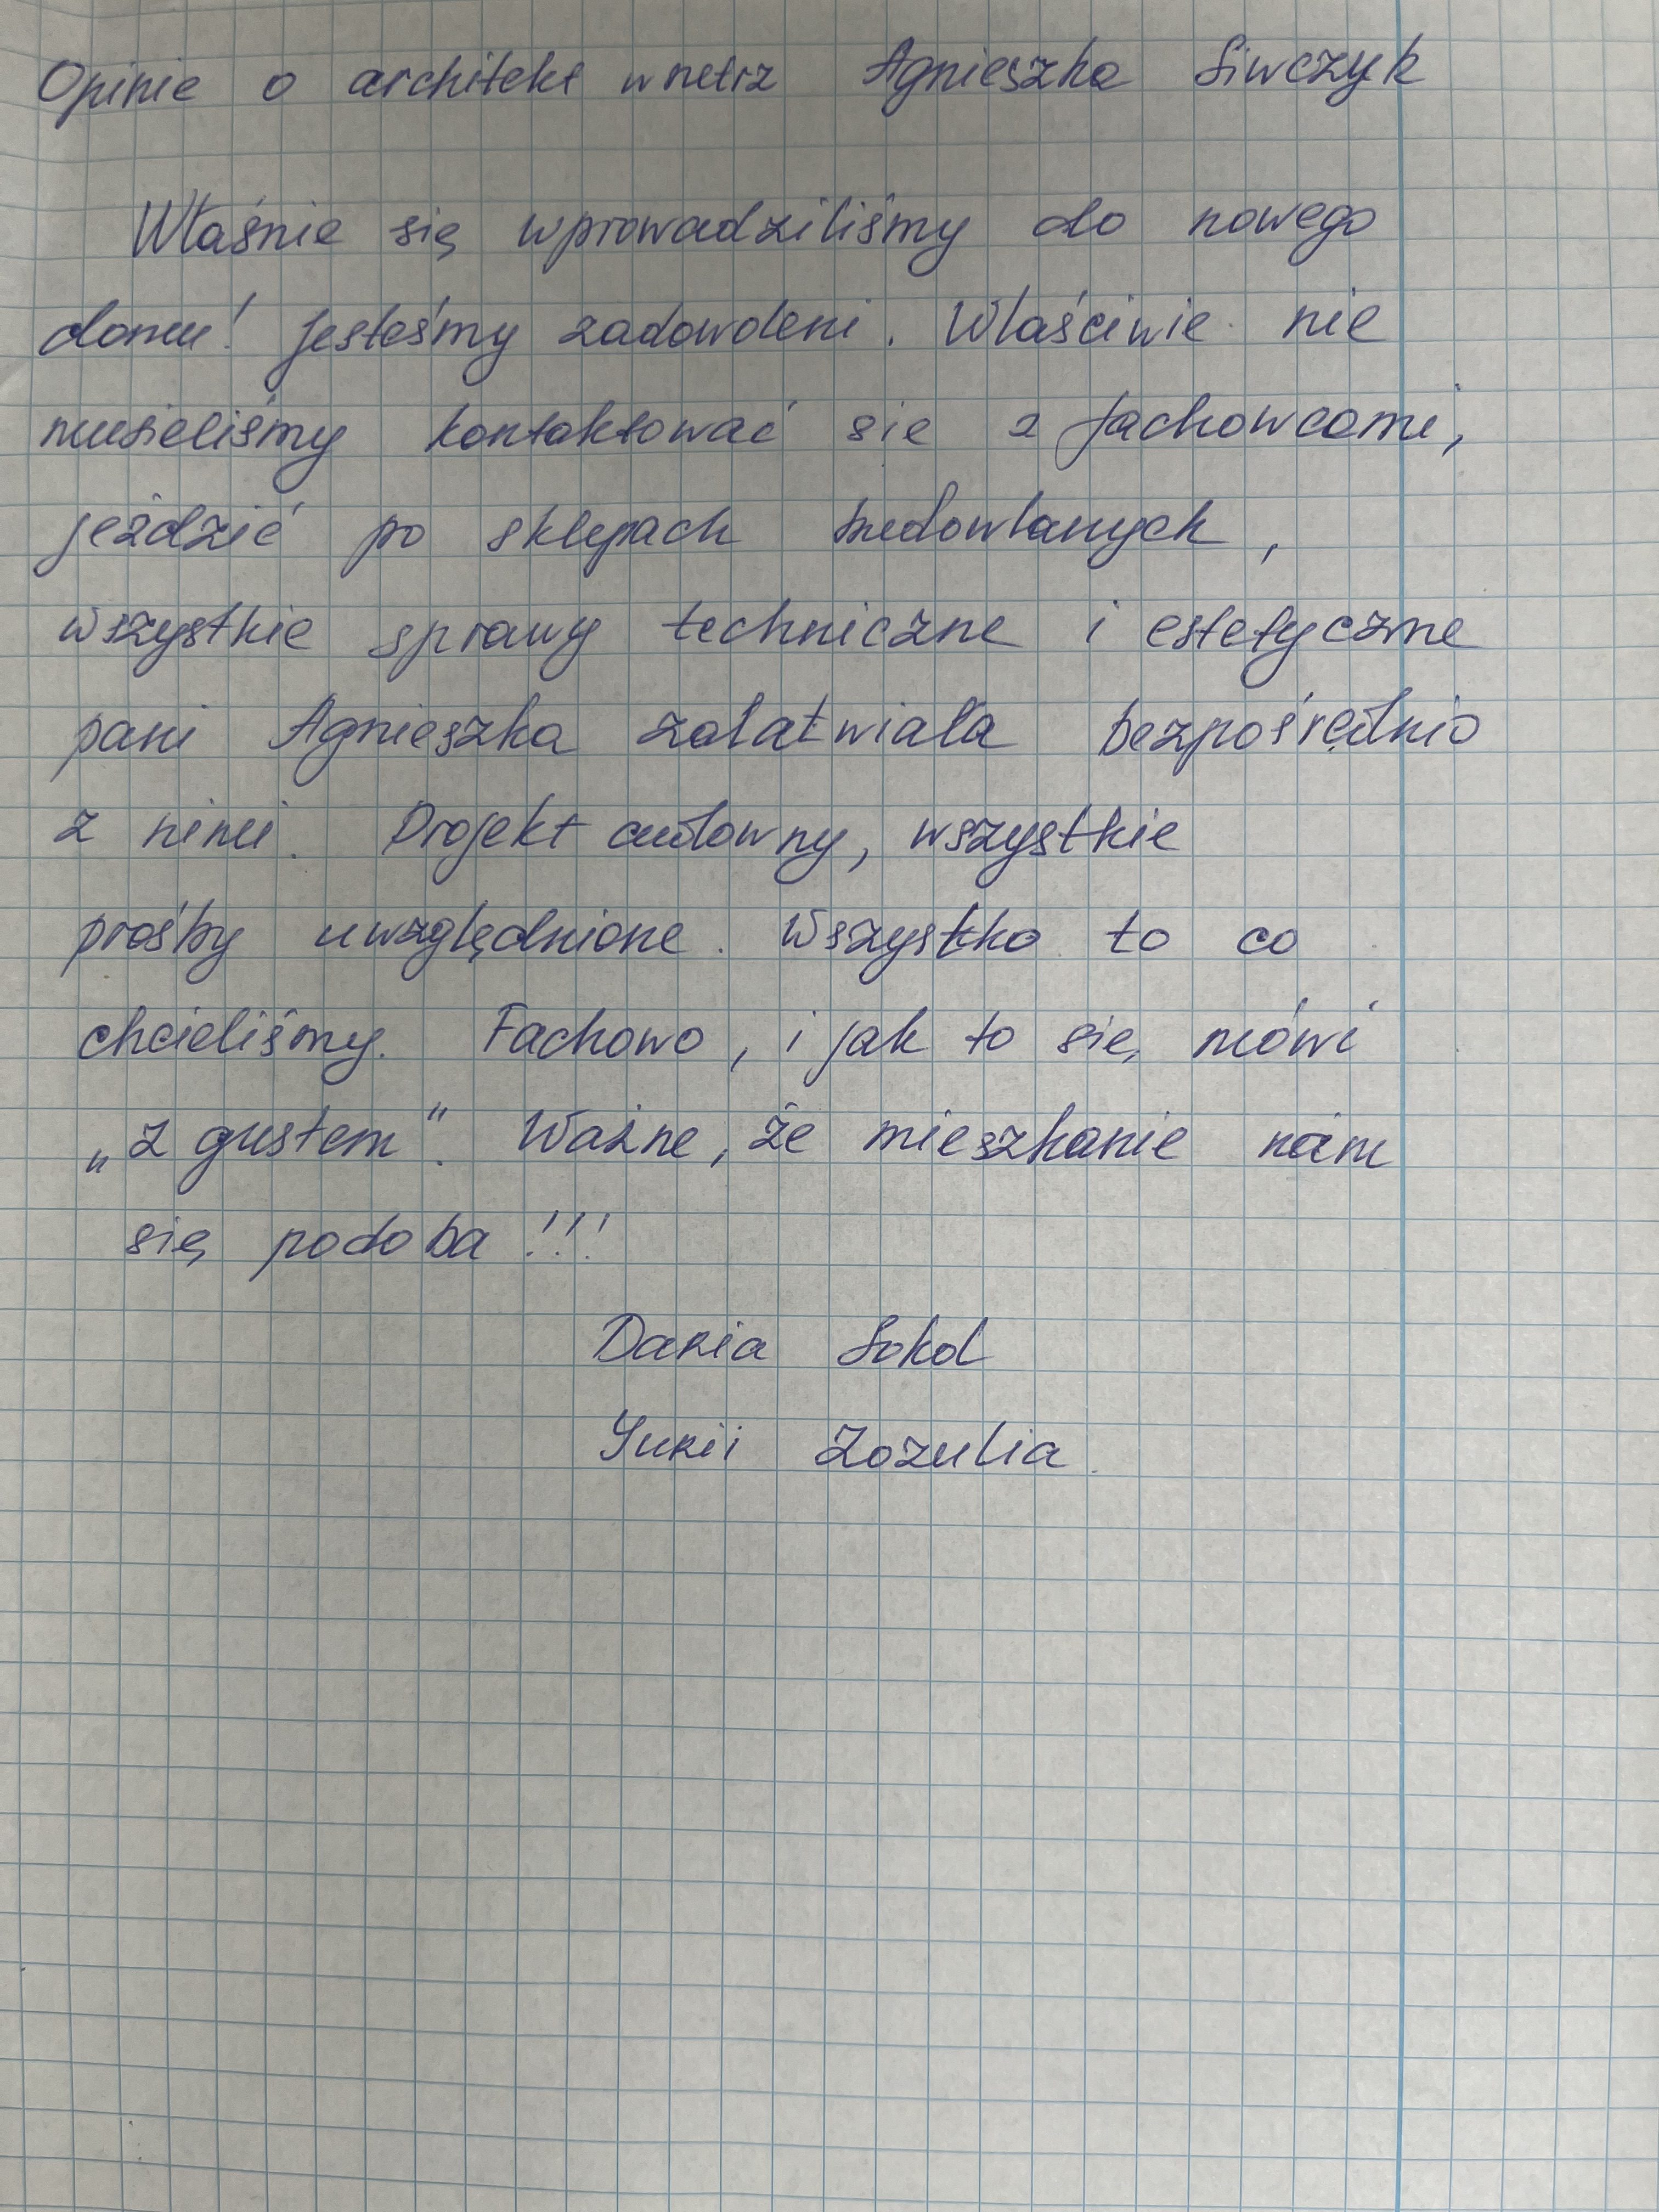 Opinie o architekt wnetrz Agnieszka Siwczyk
Właśnie się wprowadziliśmy do nowego
domu! Jesteśmy zadowoleni. Właściwie nie
musieliśmy kontaktować sie z fachowcami,
jeździć po sklepach budowlanych,
wszystkie sprawy techniczne i estetyczne
pani Agnieszka załatwiała bezpośrednio
z nimi. Projekt cudowny, wszystkie
prośby uwzględnione. Wszystko to co
chcieliśmy. Fachowo, i jak to się mówi
„z gustem". Ważne, że mieszkanie nam
się podoba!!!
Daria Sokol
Yurii Zozulia.